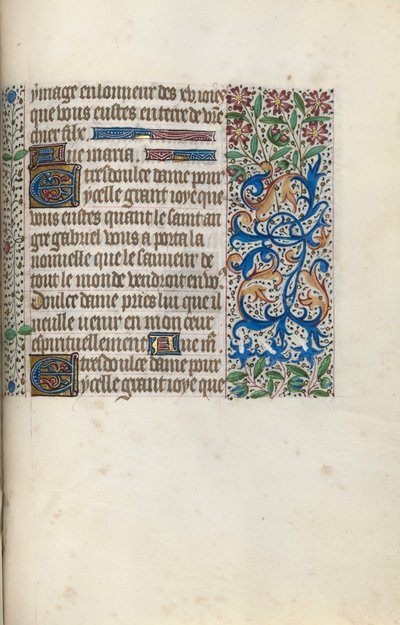 ymage en lonneur des xv. ioies
que vous eustes en terre de vr̄e
chier filx
Aue maria.
E tresdoulce dame pour
ycelle grant ioye que
vous eustes quant le saint an
gre gabriel vous aporta la
nouuelle que le sauueur de
tout le monde vendroit en vo
Doulce dame pries lui que il
vueille venir en mon cueur
espirituellement Aue ma
E tresdoulce dame pour
ycelle grant ioye que